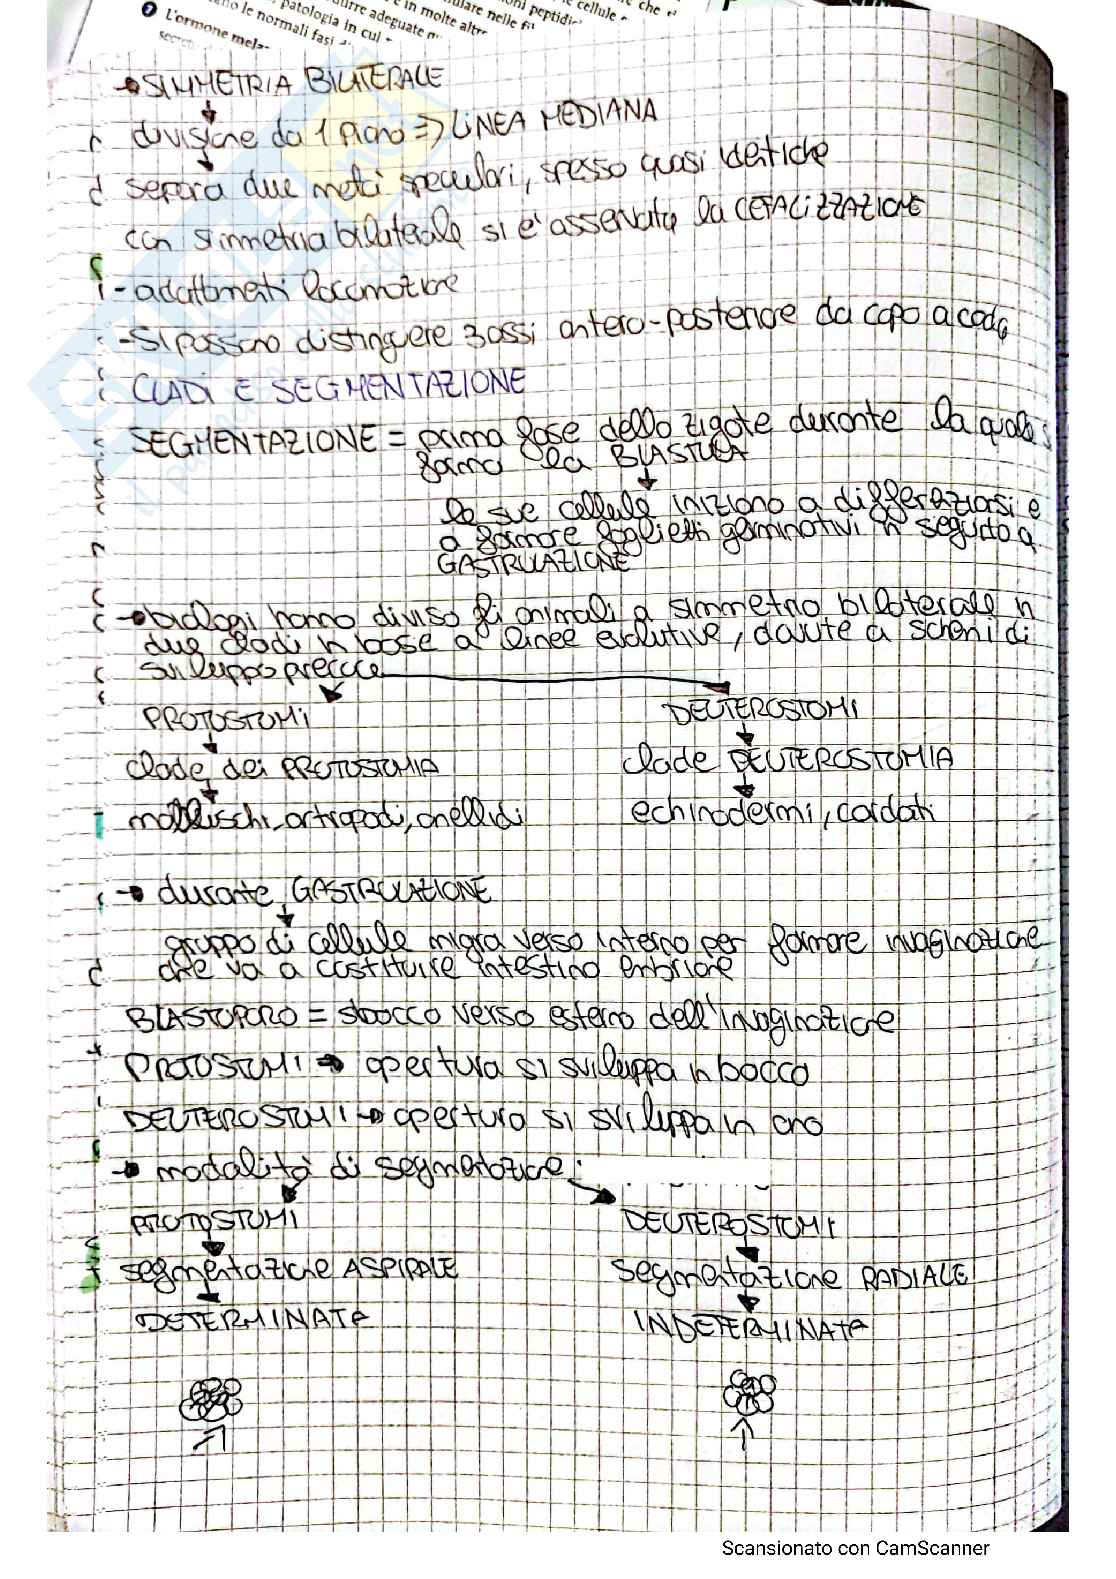 che
cellule
oni peptidi
ulare nelle
e in molte altre
urre adeguate
patologia in cui
le normali fasi
2 L'ormone mela
→ SIMMETRIA BILATERALE
divisione da 1 piano => LINEA MEDIANA
separa due metà speculari, spesso quasi identiche
con simmetria bilaterale si e' asservata la CEFALIZZAZIONE
- adattamenti locomozione
- Si possono distinguere 3 assi antero-posteriore da capo a coda
CLADI E SEGMENTAZIONE
SEGMENTAZIONE = prima fase dello zigote durante la quale si
forma la BLASTULA
le sue cellule iniziano a differaziarsi e
a formare foglietti germinativi in seguito a
GASTRULAZIONE
→ biologi hanno diviso gli animali a simmetria bilaterale in
due cladi in base a linee evolutive, davute a schemi di
sviluppo precoce
PROTOSTOMI DEUTEROSTOMI
clade dei PROTOSTOMIA clade DEUTEROSTOMIA
molluschi, artropodi, anellidi echinodermi, cordati
→ durante GASTRULAZIONE
gruppo di cellule migra verso interno per formare invaginazione
che va a costituire intestino embrione
BLASTOPORO = sbocco verso esterno dell'invaginazione
PROTOSTOMI → apertura si sviluppa in bocca
DEUTEROSTOMI → apertura si sviluppa in ano
→ modalità di segmetazione:
PROTOSTOMI DEUTEROSTOMI
segmentazione ASPIRALE segmentazione RADIALE
DETERMINATA INDETERMINATA
Scansionato con CamScanner